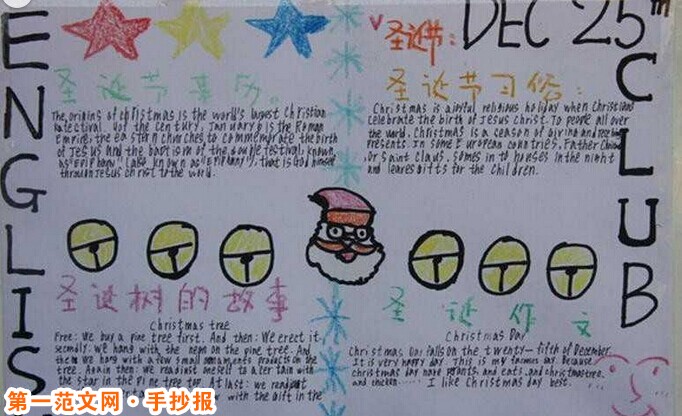 ENGLIS
圣诞节来历。
The origins of christmas is the world's largest Christian
of the century, January 6 is the Roman
Empire; the eastern churches to commemorate the birth
of Jesus and the baptism of the double festival, known
as "Epiphany", that is God himself
through Jesus christ to the world.
圣诞节:DEC 25th
圣诞节习俗:
Christmas is a joyful religious holiday when Christians
celebrate the birth of Jesus Christ. To people all over
the world, Christmas is a season of giving and receiving
presents. In some European countries, Father
Or Saint claus, comes in to houses in the night
and leaves gifts for the children.
CLUB
圣诞树的故事
Christmas tree
Free: We buy a pine tree first. And then: We erect it
secondly: we hang with the neon on the pine tree. And
then we hang with a few small ornaments products on the
tree. Again then: we readjust oneself to a certain with
the star in the pine tree top. At last: we readjust
with the gift in the
圣诞作文
Christmas Day
Christmas Day falls on the twenty-fifth of December.
It is very happy day. This is my famous day. Because
christmas day have and eats, and christmas tree.
and chicken...... I like Christmas day best.
第一范文网·手抄报